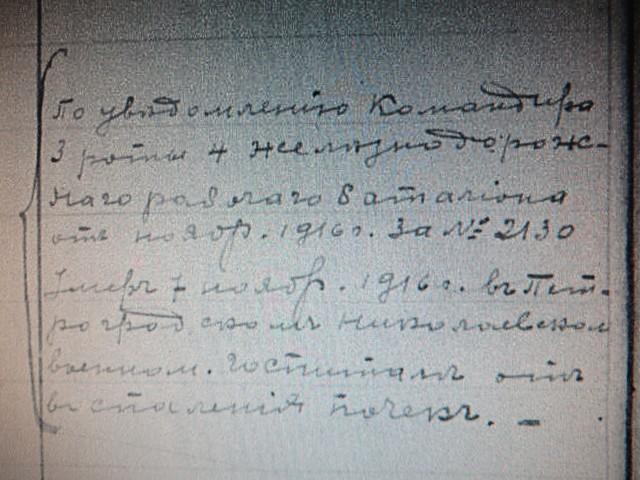 По увѣдомленію Командира
3 роты 4 Желѣзнодорож-
наго рабочаго баталіона
отъ нояб. 1916 г. За № 2130
Умеръ 7 нояб. 1916 г. въ Пет-
роградскомъ Николаевском
военном. Госпиталѣ отъ
воспаленія почекъ. –